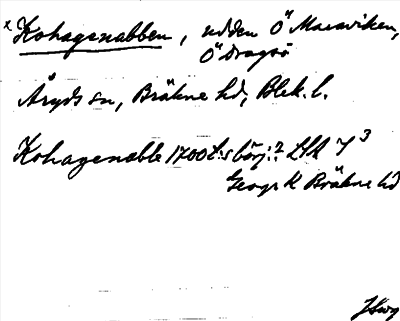 x Kohagenabben, udden Ö Maraviken,
Ö Dragsö
Åryds sn, Bräkne hd, Blek. l.
Kohagenabbe 1700 t:s börj:? LSA Y 3
Geogr K Bräkne hd